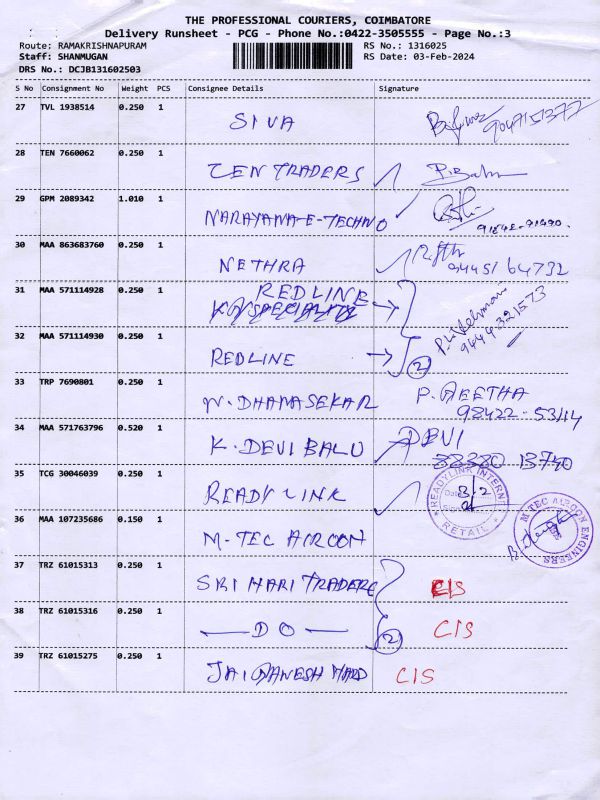 THE PROFESSIONAL COURIERS, COIMBATORE
Delivery Runsheet - PCG - Phone No.:0422-3505555 - Page No.:3
Route: RAMAKRISHNAPURAM RS No.: 1316025
Staff: SHANMUGAN RS Date: 03-Feb-2024
DRS No.: DCJB131602503
S No Consignment No Weight PCS Consignee Details Signature
27 TVL 1938514 0.250 1 SIVA
28 TEN 7660062 0.250 1 ZEN TRADERS P.Balu
29 GPM 2089342 1.010 1 NARAYANA-E-TECHNO
30 MAA 863683760 0.250 1 NETHRA
94451 64732
31 MAA 571114928 0.250 1 REDLINE
32 MAA 571114930 0.250 1 REDLINE 2
33 TRP 7690801 0.250 1 N. DHANASEKAR P. GEETHA
34 MAA 571763796 0.520 1 K. DEVI BALU DEVI
88380 13740
35 TCG 30046039 0.250 1 READYLINK
READYLINK INTERNET
RETAIL
36 MAA 107235686 0.150 1 M-TEC AIRCON
M.TEC AIRCON ENGINEERS
37 TRZ 61015313 0.250 1 SRI HARI TRADERS C/S
38 TRZ 61015316 0.250 1 — DO — 2 C/S
39 TRZ 61015275 0.250 1 JAI GANESH HARD C/S